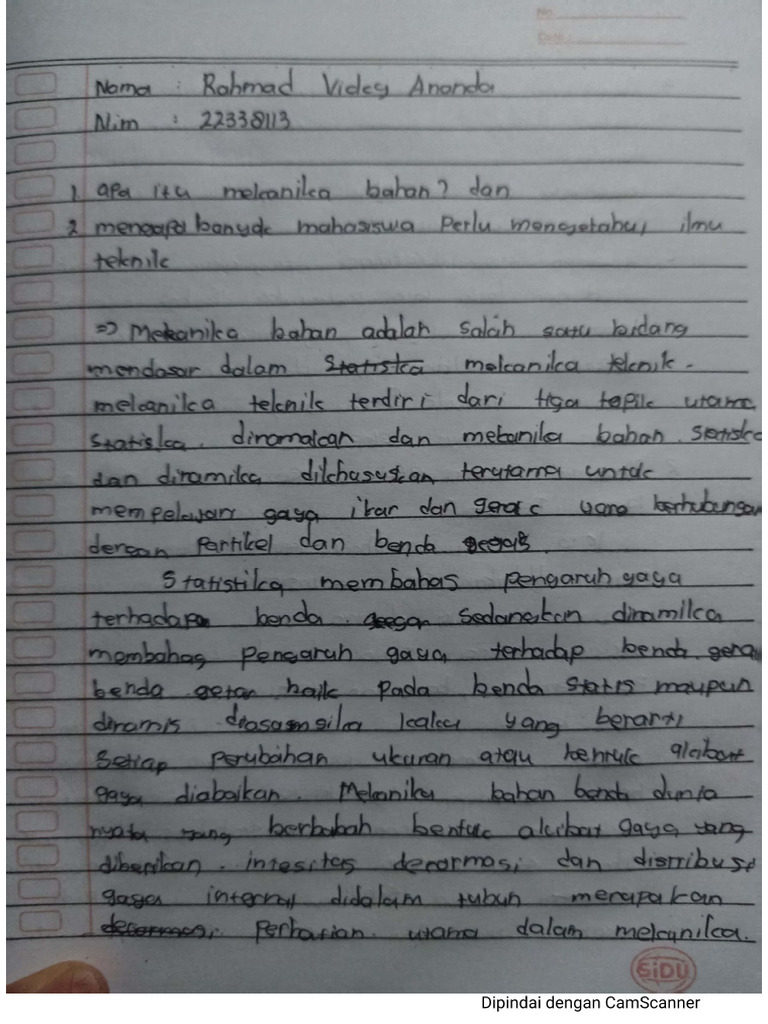 No.
Date :
Nama : Rahmad Videy Ananda
Nim : 22338113
1. apa itu mekanika bahan? dan
2. mengapa banyak mahasiswa Perlu mengetahui ilmu
teknik
=> Mekanika bahan adalah salah satu bidang
mendasar dalam Statiska mekanika teknik.
mekanika teknik terdiri dari tiga topik utama
statiska. dinamakan dan mekanika bahan. Statiska
dan dinamika dikhususkan terutama untuk
mempelajari gaya dan gerak yang berhubungan
dengan Partikel dan benda
Statistika membahas pengaruh gaya
terhadap benda sedangkan dinamika
membahas pengaruh gaya terhadap benda
benda baik pada benda statis maupun
dinamis kaku yang berarti
Setiap perubahan ukuran atau bentuk akibat
gaya diabaikan. Mekanika bahan benda dunia
nyata yang berbubah bentuk akibat gaya yang
diberikan. intesitas deformasi dan distribusi
gaya internal didalam tubuh merapakan
deformasi, Perhatian utama dalam mekanika.
SiDU
Dipindai dengan CamScanner